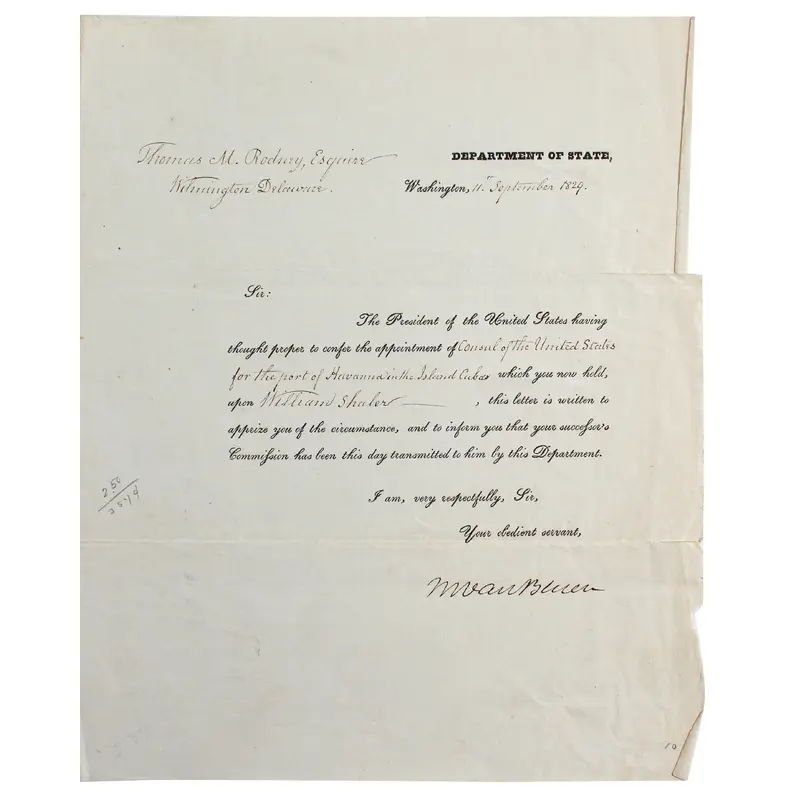 Thomas M. Rodney, Esquire
Wilmington Delaware.
DEPARTMENT OF STATE,
Washington, 11th September 1829.
Sir:
The President of the United States having
thought proper to confer the appointment of Consul of the United States
for the port of Havanna in the Island Cuba which you now hold,
upon William Shaler — , this letter is written to
apprize you of the circumstance, and to inform you that your successor's
Commission has been this day transmitted to him by this Department.
I am, very respectfully, Sir,
Your obedient servant,
M Van Buren
250
10